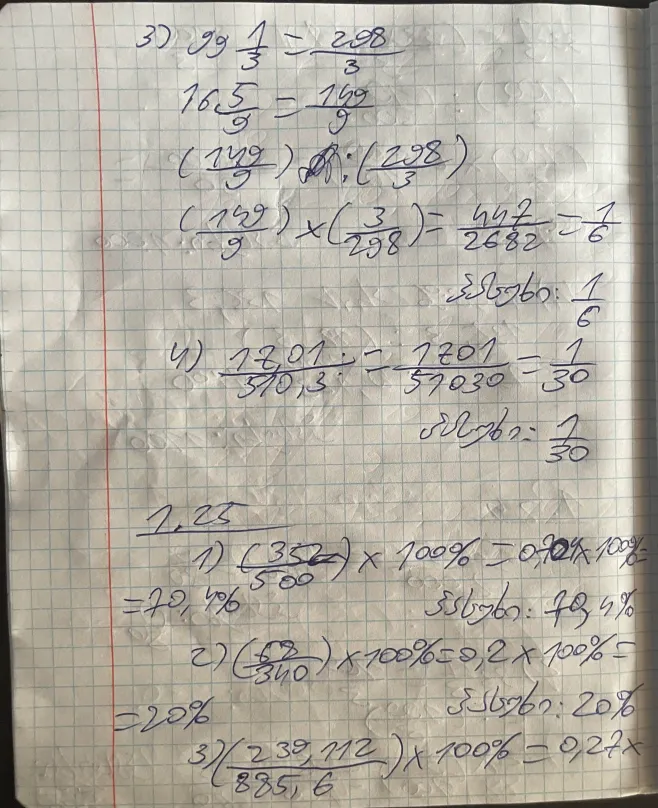 3) 99 1/3 = 298/3
16 5/9 = 149/9
(149/9) : (298/3)
(149/9) × (3/298) = 447/2682 = 1/6
პასუხი: 1/6
4) 17,01/510,3 = 1701/51030 = 1/30
პასუხი: 1/30
1,25
1) (352/500) × 100% = 0,704 × 100% =
= 70,4%
პასუხი: 70,4%
2) (68/340) × 100% = 0,2 × 100% =
= 20%
პასუხი: 20%
3) (239,112/885,6) × 100% = 0,27 ×